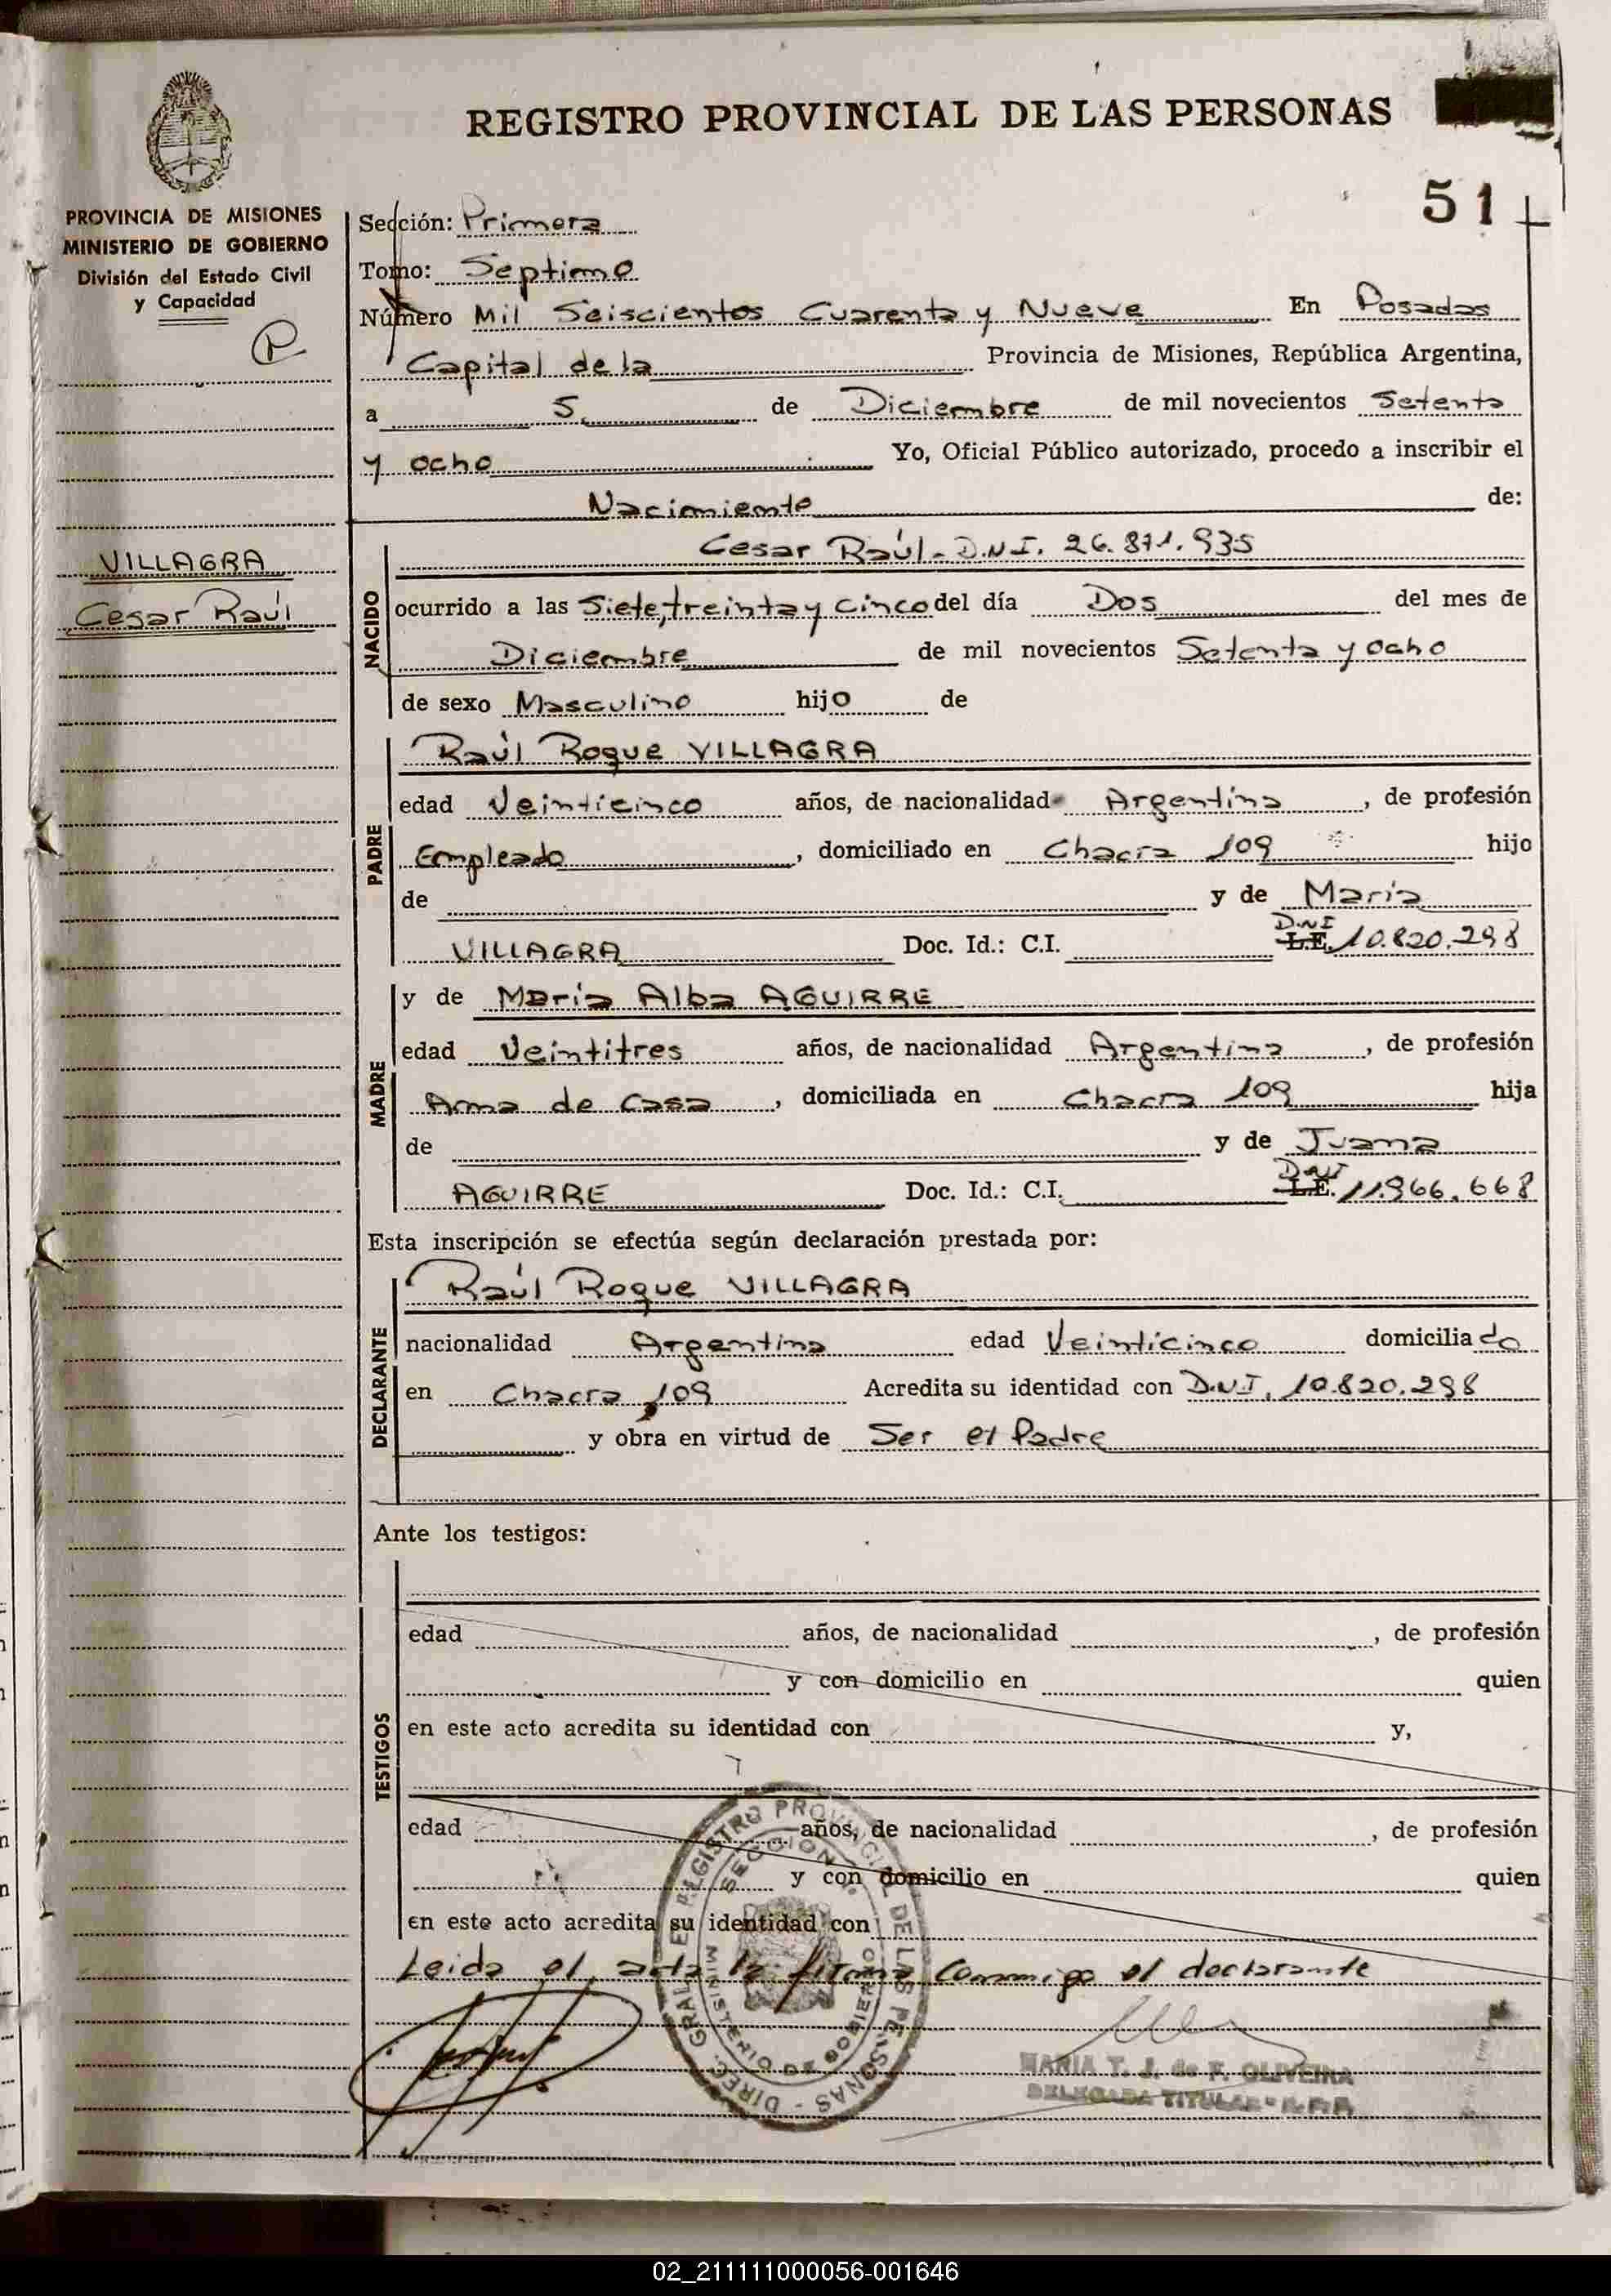 REGISTRO PROVINCIAL DE LAS PERSONAS
51
PROVINCIA DE MISIONES
MINISTERIO DE GOBIERNO
División del Estado Civil
y Capacidad
P
VILLAGRA
Cesar Raúl
Sección: Primera
Tomo: Septimo
Número Mil Seiscientos Cuarenta y Nueve En Posadas
Capital de la Provincia de Misiones, República Argentina,
a 5 de Diciembre de mil novecientos Setenta
y ocho Yo, Oficial Público autorizado, procedo a inscribir el
Nacimiento de:
NACIDO
Cesar Raúl - D.N.I. 26.871.935
ocurrido a las Siete, treinta y cinco del día Dos del mes de
Diciembre de mil novecientos Setenta y ocho
de sexo Masculino hijo de
PADRE
Raúl Roque VILLAGRA
edad Veinticinco años, de nacionalidad Argentina, de profesión
Empleado, domiciliado en Chacra 109 hijo
de y de María
VILLAGRA Doc. Id.: C.I. L.E. D.N.I 10.820.298
MADRE
y de María Alba AGUIRRE
edad Veintitres años, de nacionalidad Argentina, de profesión
Ama de Casa, domiciliada en Chacra 109 hija
de y de Juana
AGUIRRE Doc. Id.: C.I. L.E. D.N.I 11.966.668
Esta inscripción se efectúa según declaración prestada por:
DECLARANTE
Raúl Roque VILLAGRA
nacionalidad Argentina edad Veinticinco domiciliado
en Chacra 109 Acredita su identidad con D.N.I. 10.820.298
y obra en virtud de Ser el Padre
Ante los testigos:
TESTIGOS
edad años, de nacionalidad , de profesión
y con domicilio en quien
en este acto acredita su identidad con y,
edad años, de nacionalidad , de profesión
y con domicilio en quien
en este acto acredita su identidad con
Leida el acta la firma conmigo el declarante
DIREC. GRAL. REGISTRO PROVINCIAL DE LAS PERSONAS
SECCION
MINISTERIO DE GOBIERNO
MARIA T. J. de F. OLIVEIRA
DELEGADA TITULAR - R.P.P.
02_211111000056-001646